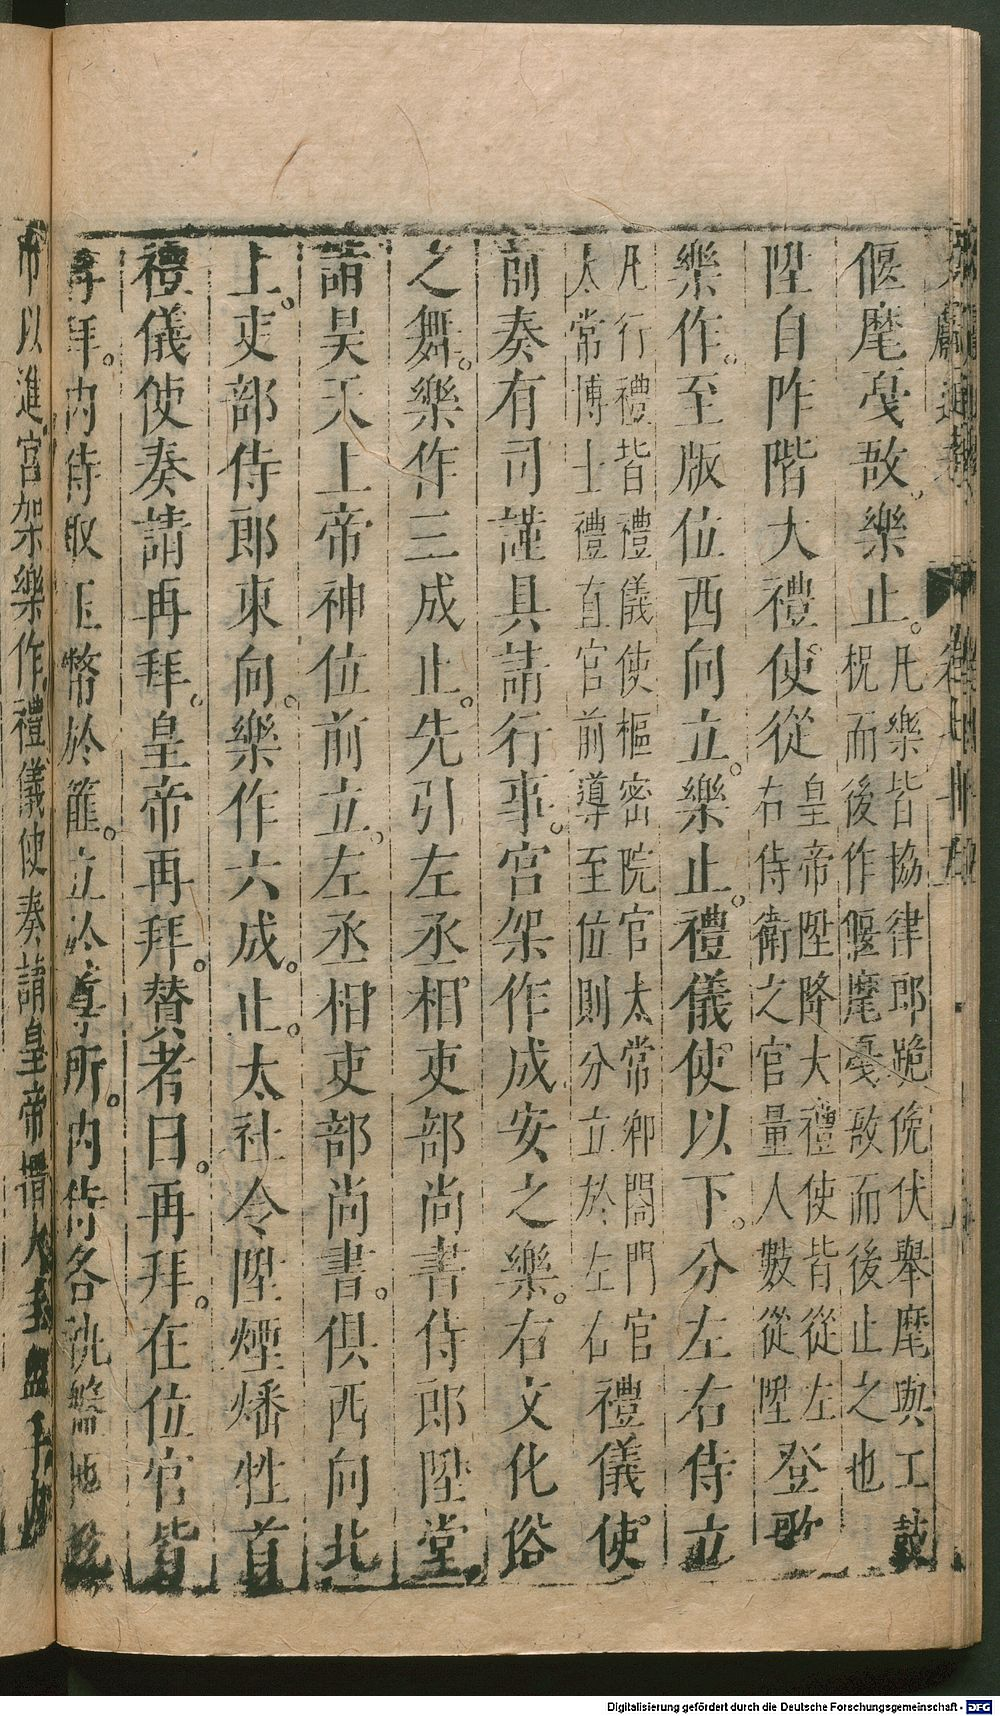 偃麾戞敔樂止。凡樂皆協律郎跪俛伏舉麾興工鼓
柷而後作偃麾戞敔而後止之也
陞自昨階大禮使從皇帝陞降大禮使皆從左
右侍衛之官量人數從陞登歌
樂作。至版位西向立。樂止。禮儀使以下。分左右侍立
凡行禮皆禮儀使樞密院官太常卿閤門官
太常博士禮直官前導至位則分立於左右禮儀使
前奏有司謹具請行事。宮架作成安之樂。右文化俗
之舞。樂作三成止。先引左丞相吏部尚書侍郎陞堂
請昊天上帝神位前立。左丞相吏部尚書。俱西向北
上。吏部侍郎東向。樂作六成。止。太社令陞煙燔牲首
禮儀使奏請再拜。皇帝再拜。贊者曰。再拜。在位官皆
再拜。內侍取玉幣於篚。立於尊所。內侍各
帝以進宮架樂作禮儀使奏請皇帝搢大圭盥手
Digitalisierung gefördert durch die Deutsche Forschungsgemeinschaft - DFG